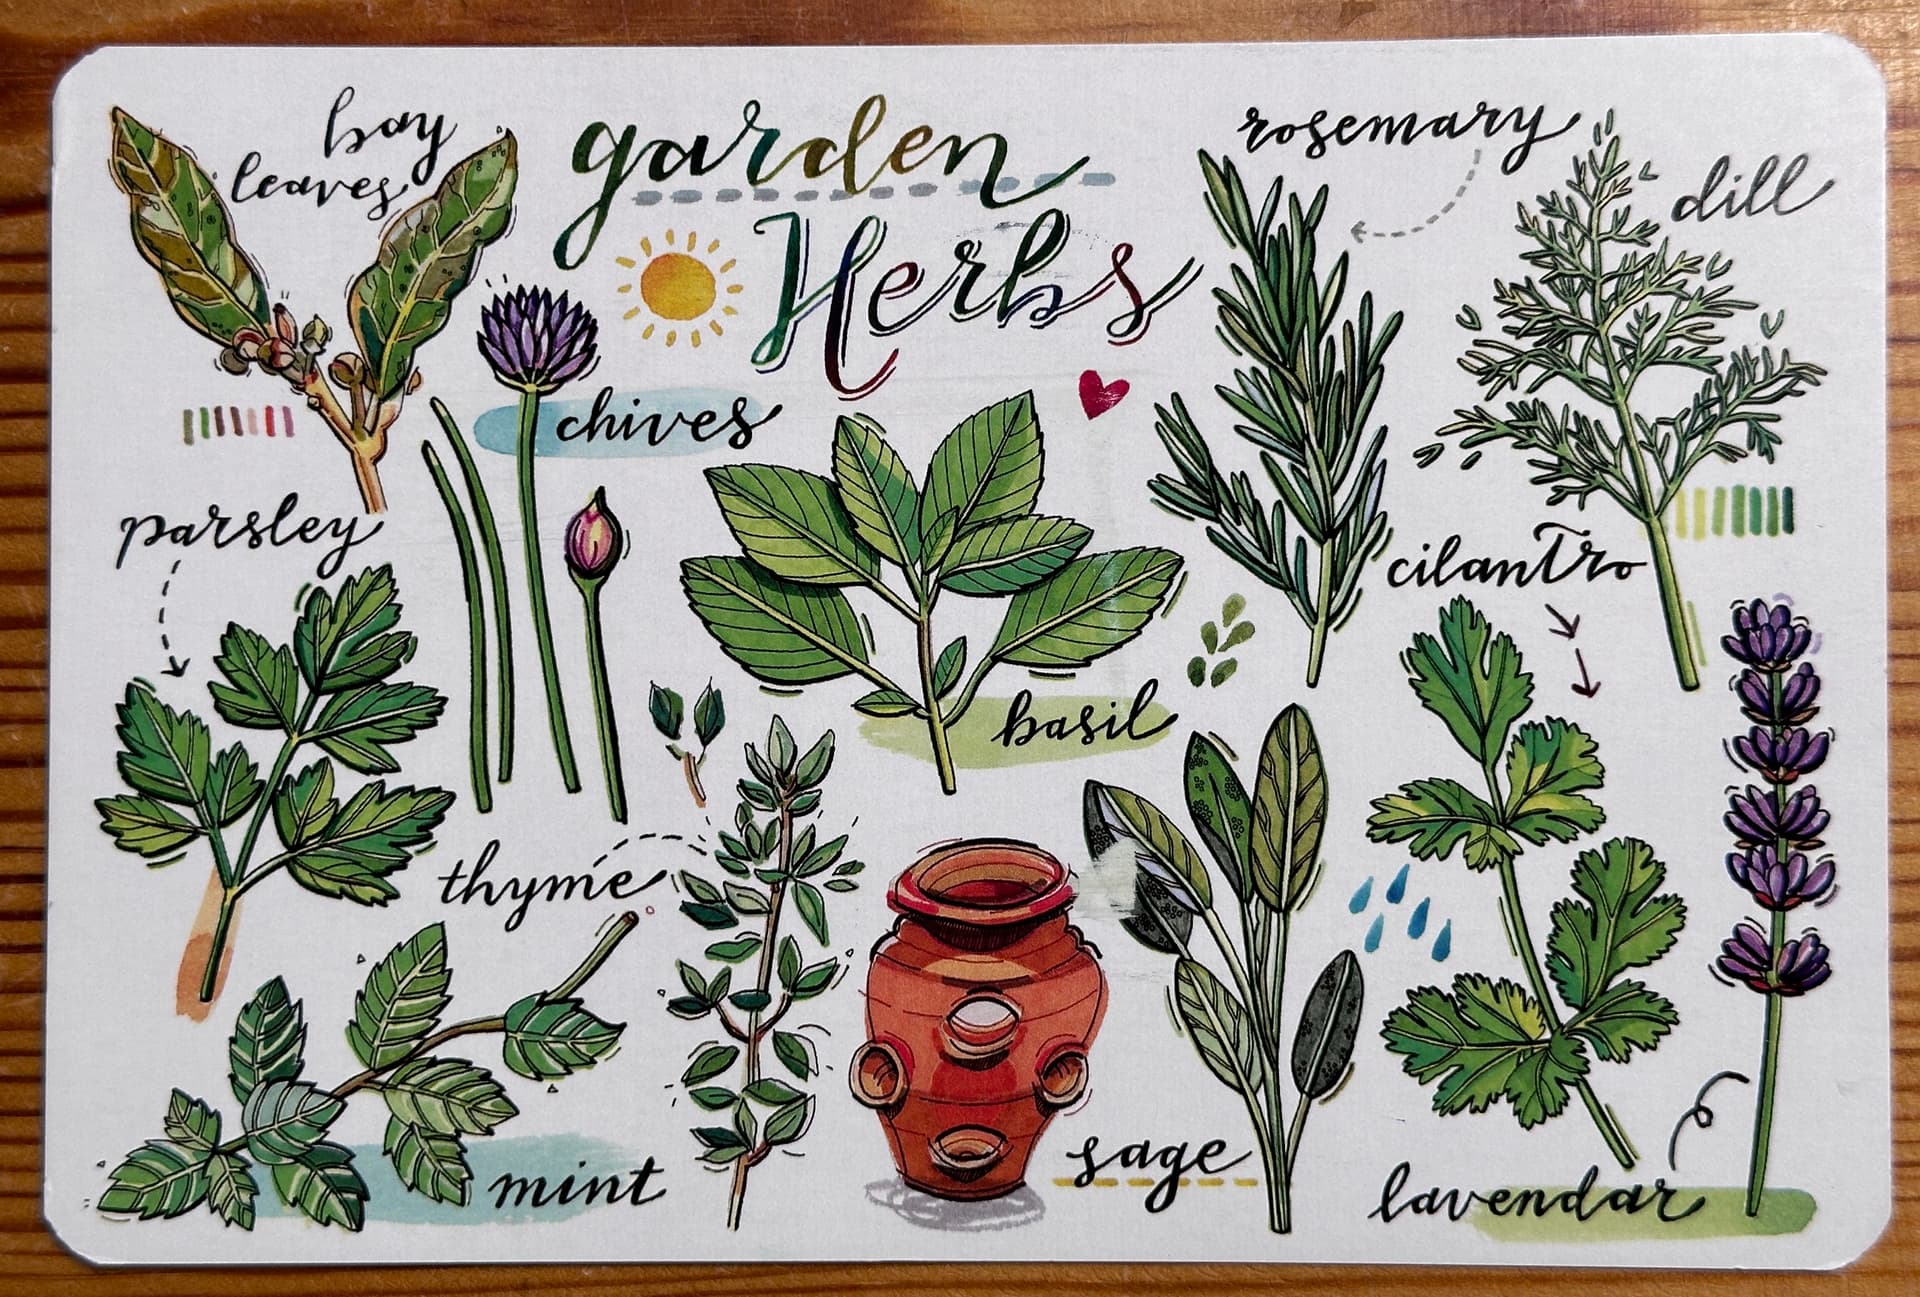 garden
Herbs
bay
leaves
rosemary
dill
chives
parsley
cilantro
basil
thyme
sage
mint
lavendar